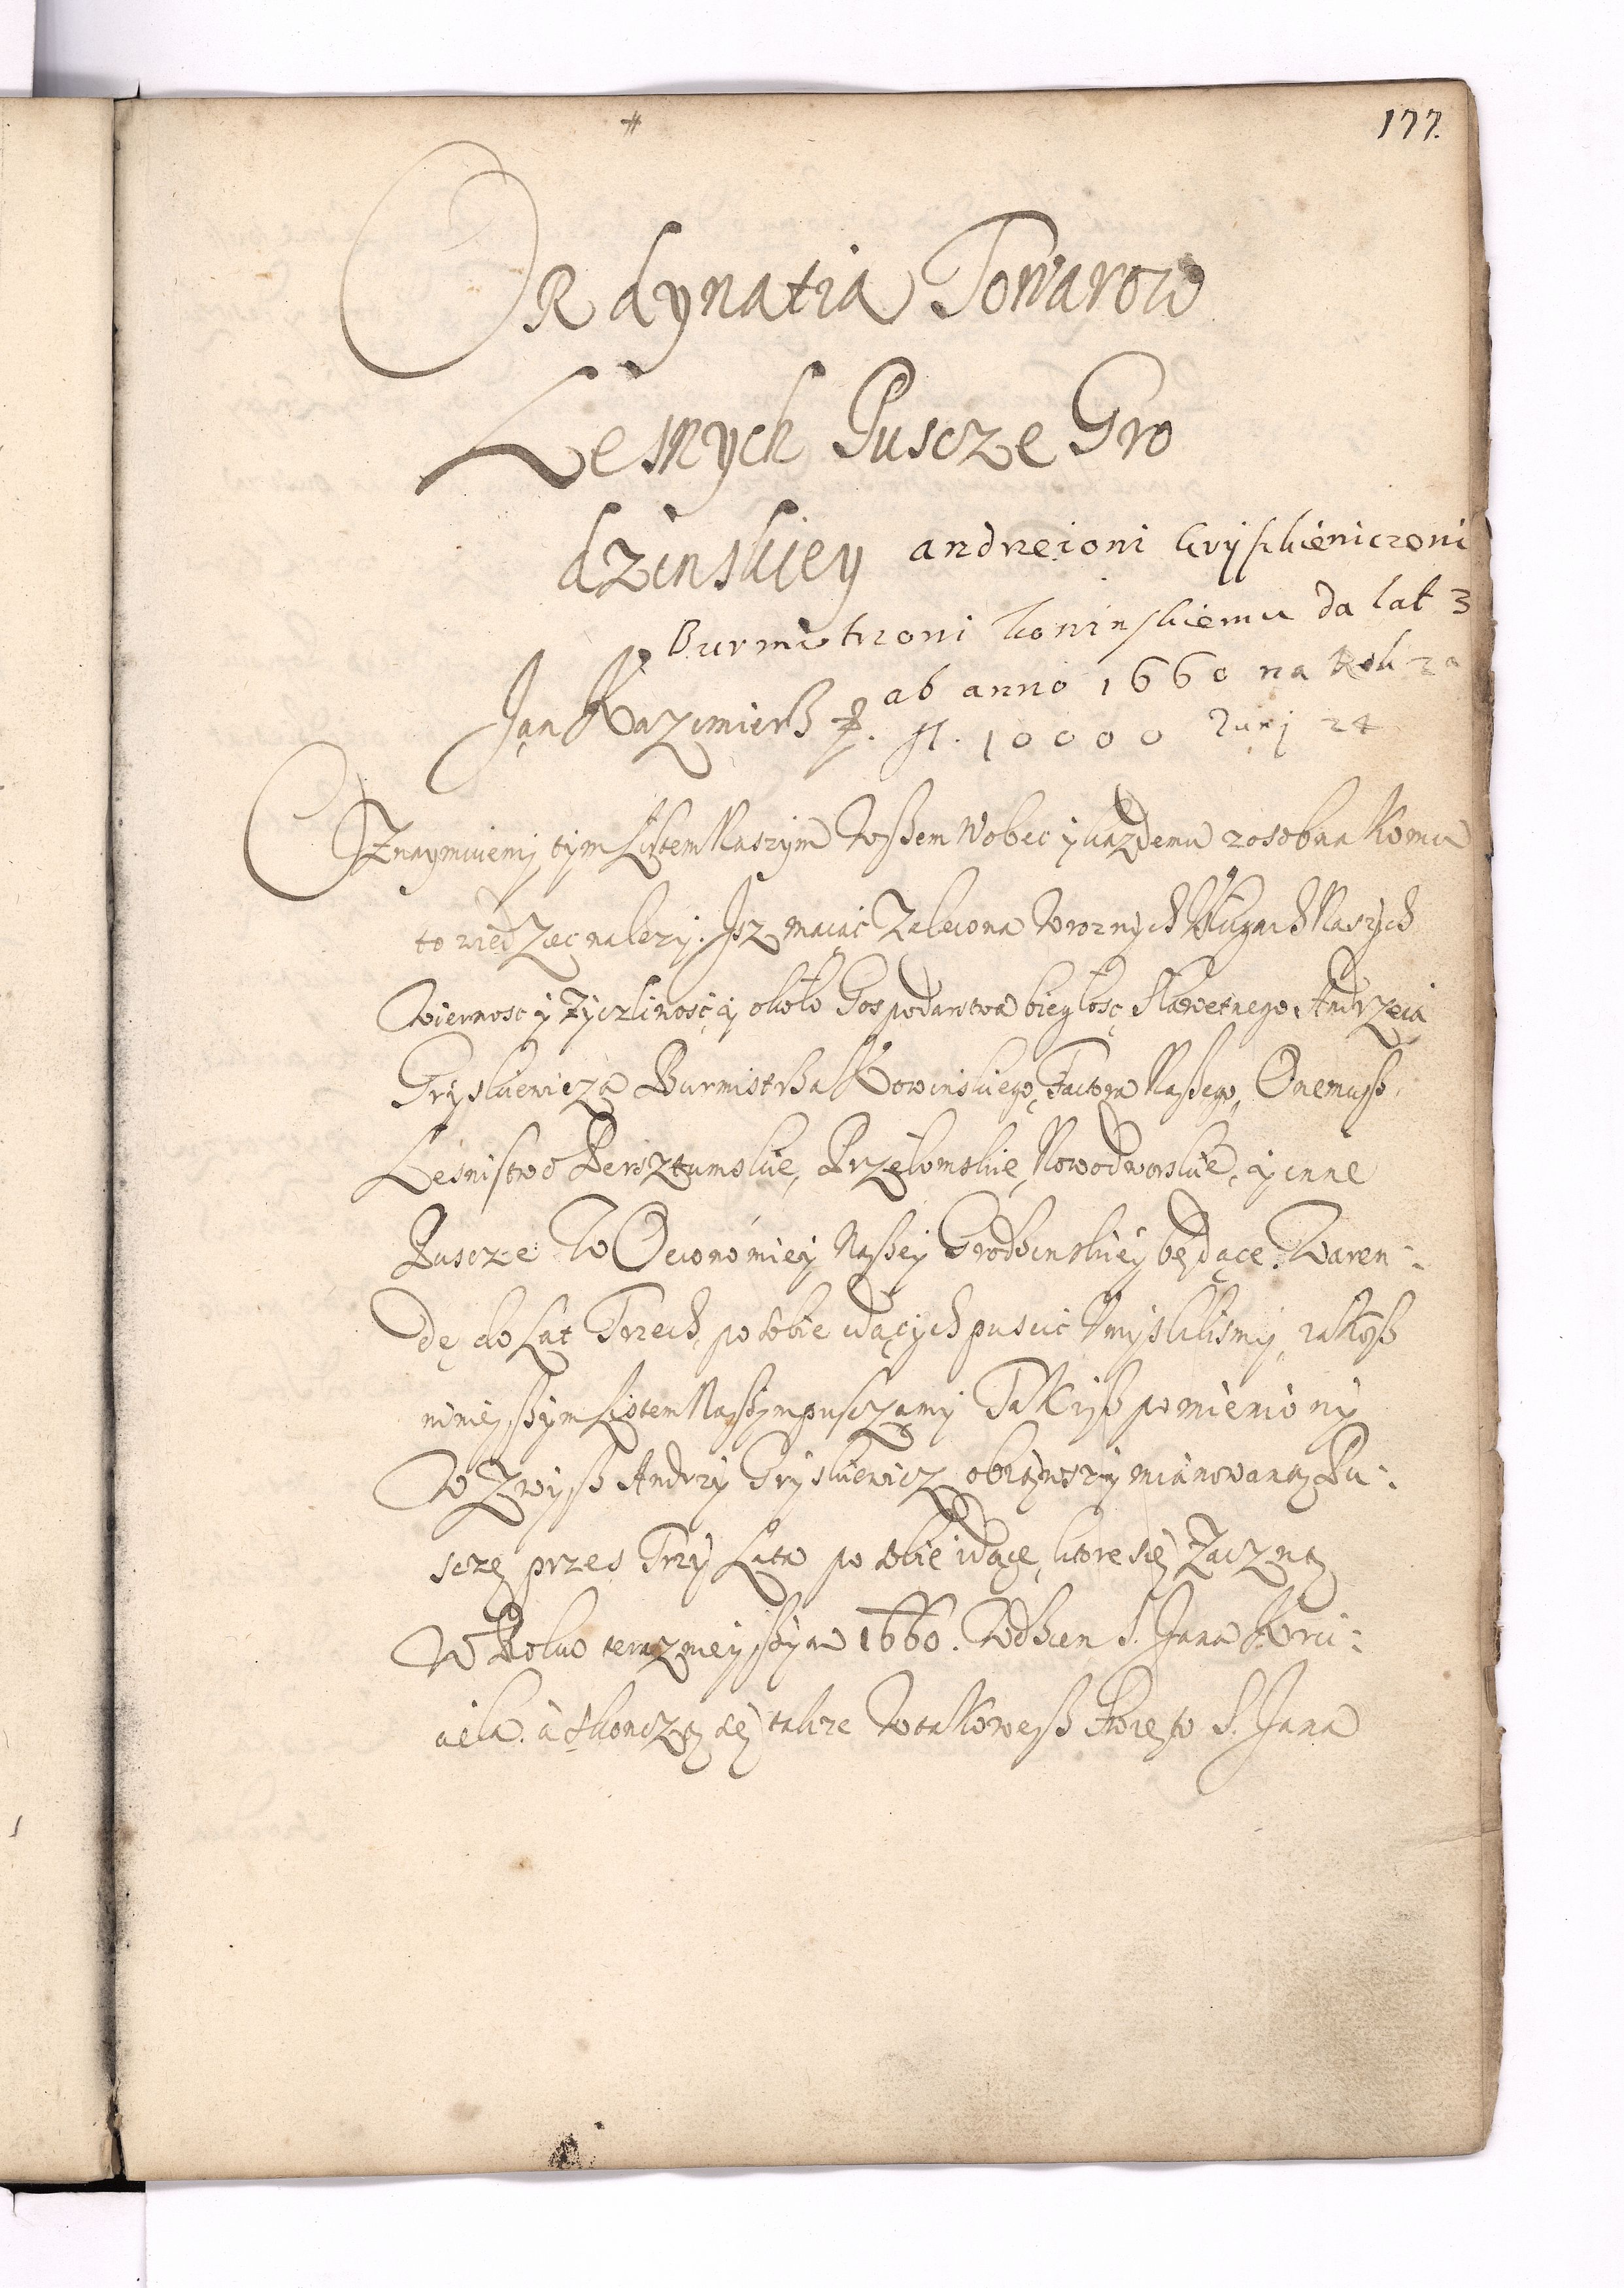 177.
#
ORdynatia Towarow
Lesnych Puscze Gro
dzinskiey andrzeiowi Gryskiewiczowi
Burmistrzowi kowinskiemu da lat 3
ab anno 1660 na Rok za
Jan Kazimierß fl. 10000 Junj 24
OZnaymuiemy tym Listem Naszym wszem wobec y kazdemu zosobna komu
to wiedziec nalezy. Jsz maiąc zalecona w roznych Naszych
wiernosc y zyczliwosc y około Gospodarstwa biegłosc Sławetnego Andrzeia
Gryskiewicza Burmistrßa Kowinskiego, Factora Naßego, Onemuß
Lesnistwo Persztumskie, Przełomskie, Nowodworskie, y inne
Puscze w Oeconomiey Naßey Grodßinskiey będące. W aren-
dę do Lat Trzech po sobie idących puscic umyslilismy, iakoß
ninieyßym Listem Naßym pusczamy Tak yß pomieniony
w zwyß Andrzy Gryskiewicz obiąwszy mianowaną Pu-
sczę przes Trzy Lata po sobie idące, ktore się zaczną
w Roku teraznieyßym 1660. W dßien S. Jana Krci-
ciela. a skonczą się takze w takoweß Swięto S. Jana